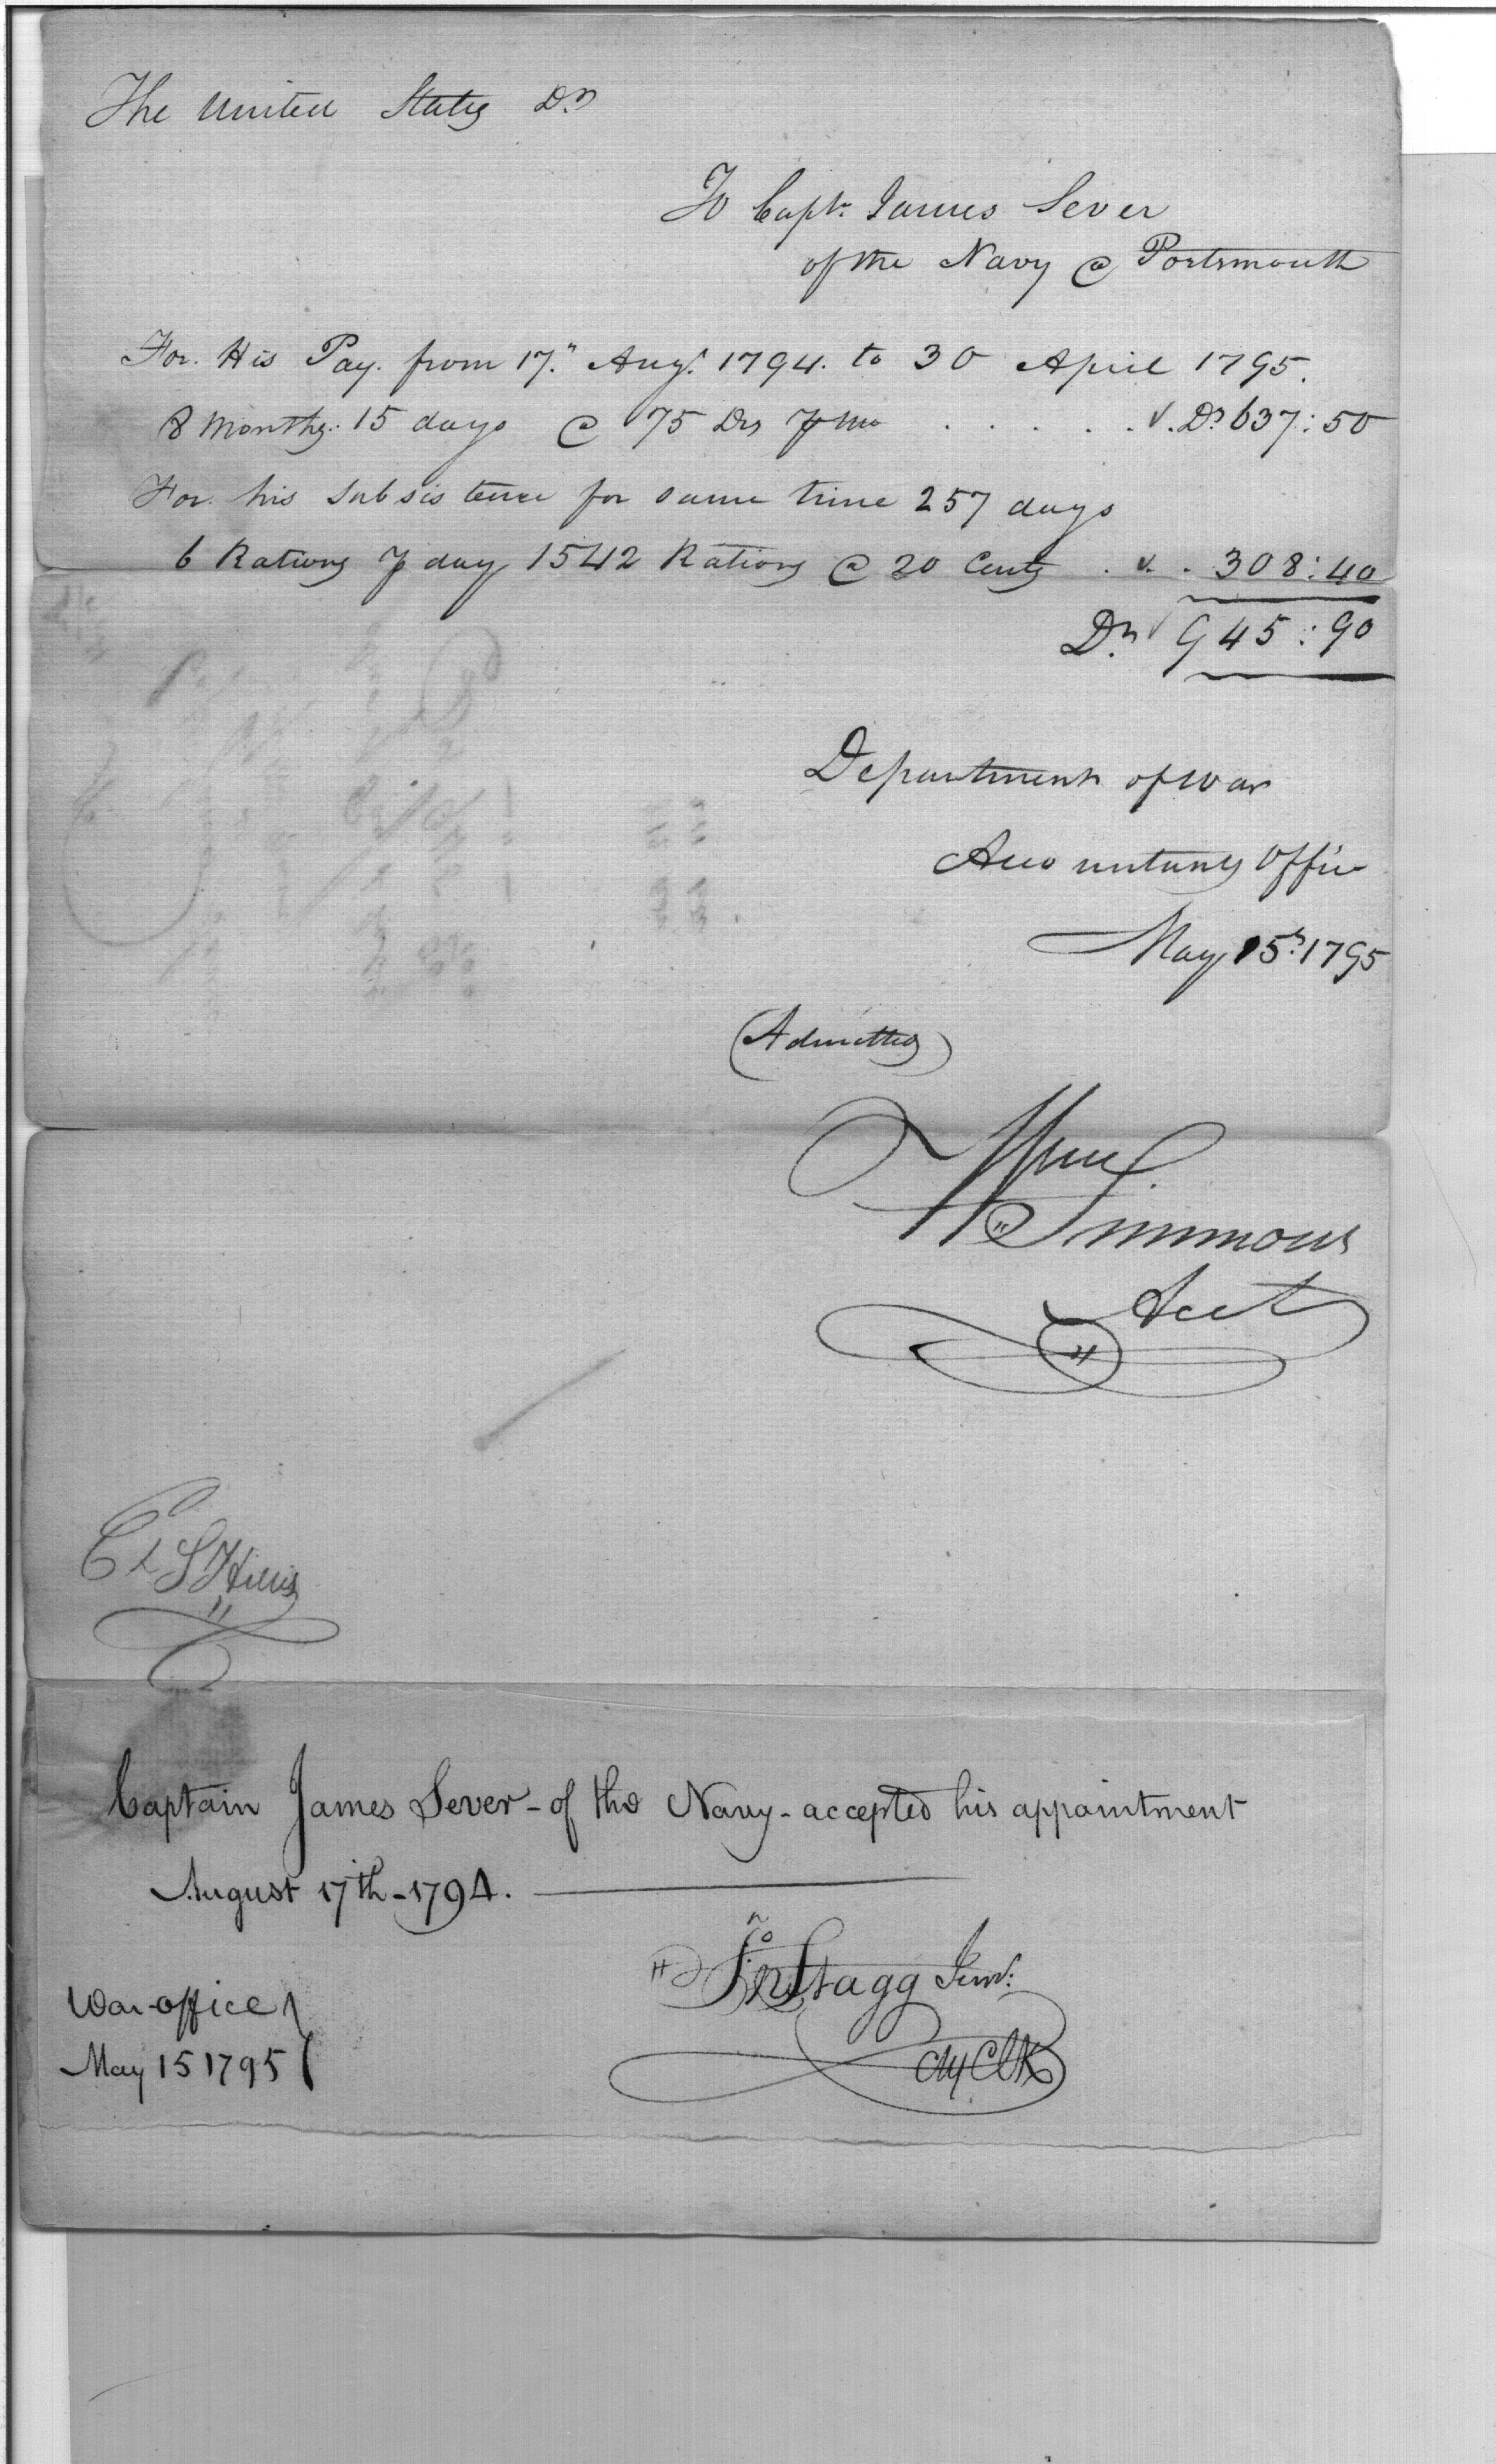 The United States Dr
To Capt. James Sever
of the Navy @ Portsmouth
For His Pay from 17." Augt. 1794. to 30 April 1795.
8 Months. 15 days @ 75 Drs ⅌ Mo . . . . . . Ds 637:50
For his Subsistence for same time 257 days
6 Rations ⅌ day 1542 Rations @ 20 Cents . . 308:40
Drs 945:90
Department of War
Accountants Office
May 15th. 1795
(Admitted)
Wm Simmons
Acct
Captain James Sever - of the Navy - accepted his appointment
August 17th - 1794.
Jno Stagg Junr:
Chf Clk
War-office
May 15 1795